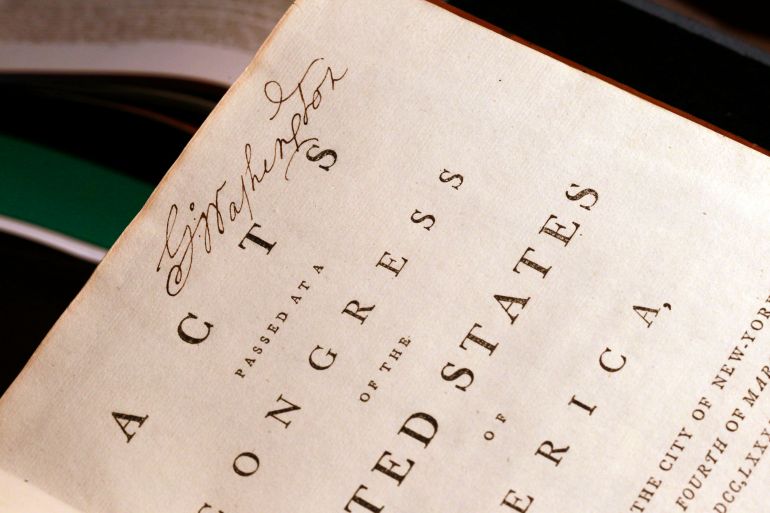 G:Washington
ACTS
PASSED AT A
CONGRESS
OF THE
TED STATES
OF
ERICA,
THE CITY OF NEW-YORK
FOURTH OF MAR
DCC,LXXX